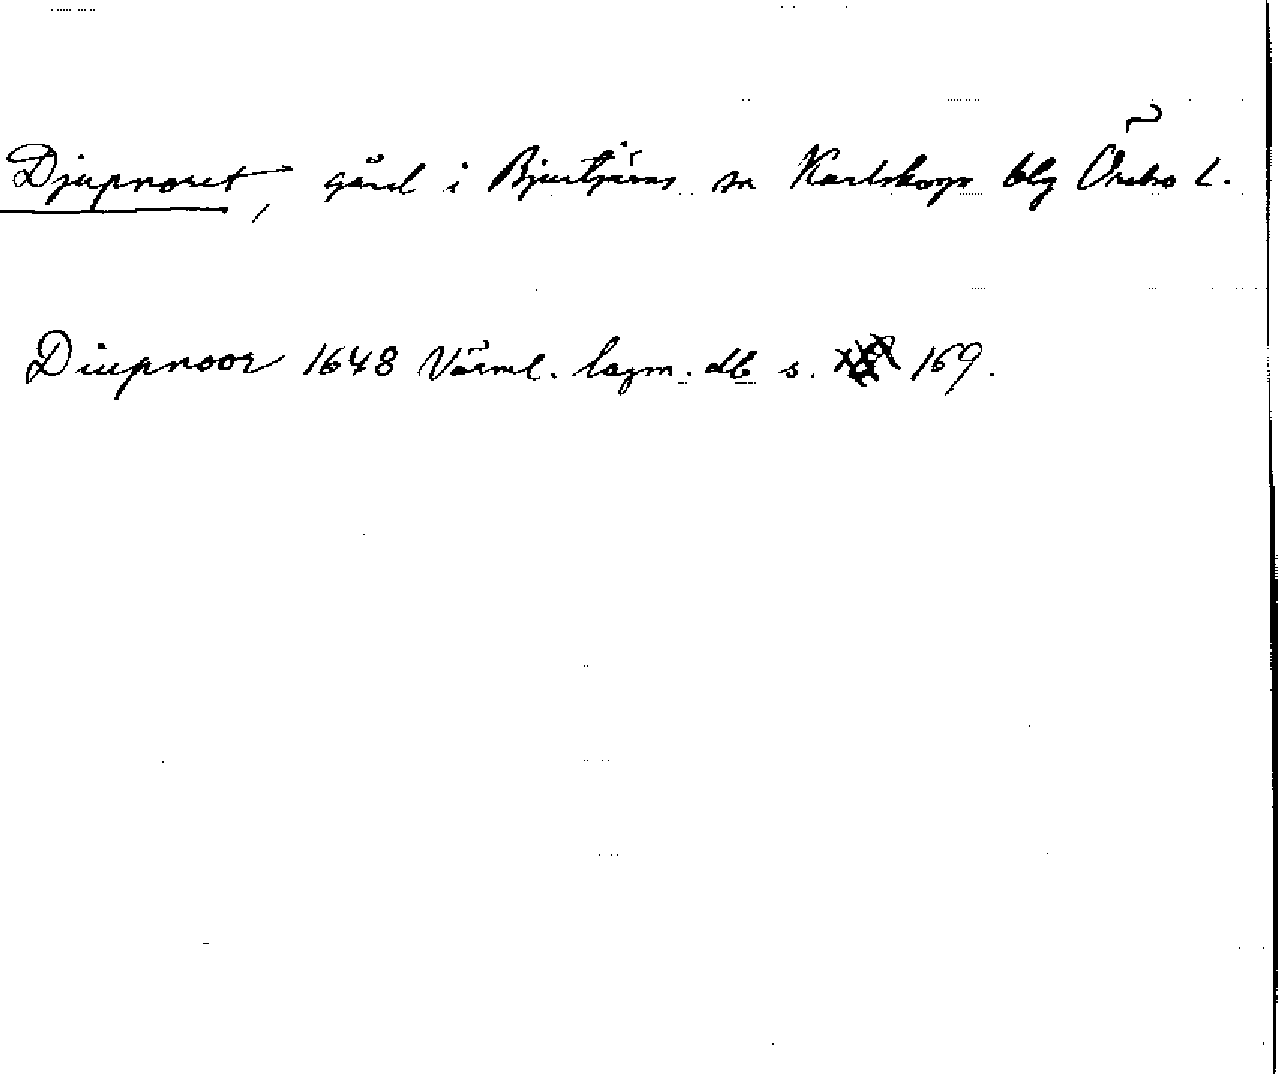 Djupnoret, gård i Bjurtjärns sn Karlskoga blg Örebro L.
Diupnoor 1648 Värml. lagm. db s. 169.